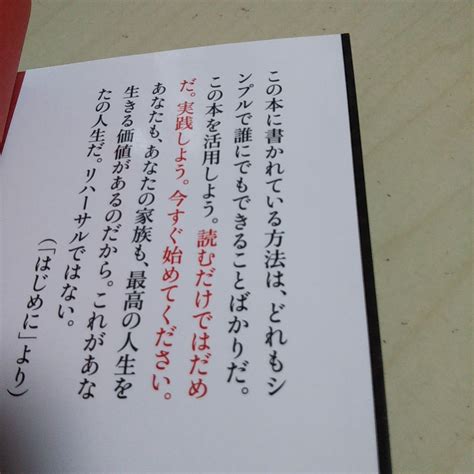 この本に書かれている方法は、どれもシ
ンプルで誰にでもできることばかりだ。
この本を活用しよう。読むだけではだめ
だ。実践しよう。今すぐ始めてください。
あなたも、あなたの家族も、最高の人生を
生きる価値があるのだから。これがあな
たの人生だ。リハーサルではない。
（「はじめに」より）